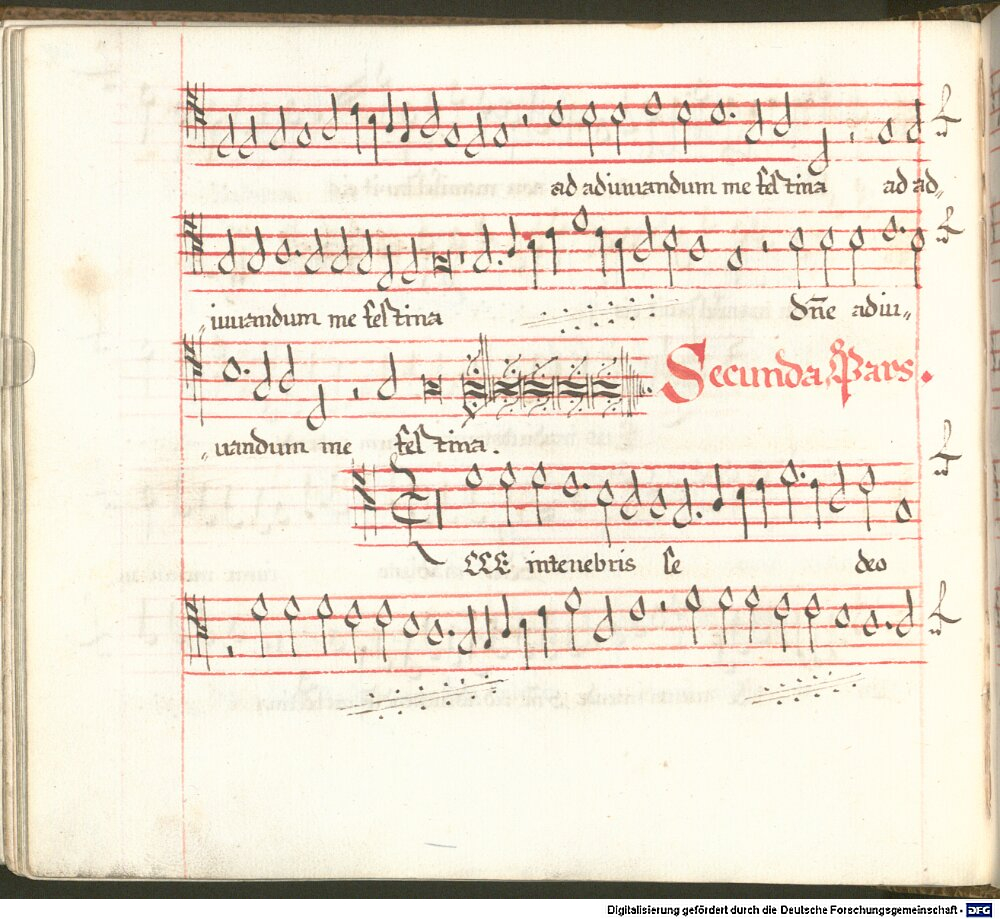 ad adiuuandum me festina ad ad„
„iuuandum me festina dn̄e adiu„
Secunda Pars.
„uandum me festina.
ECCE in tenebris se deo
Digitalisierung gefördert durch die Deutsche Forschungsgemeinschaft - DFG